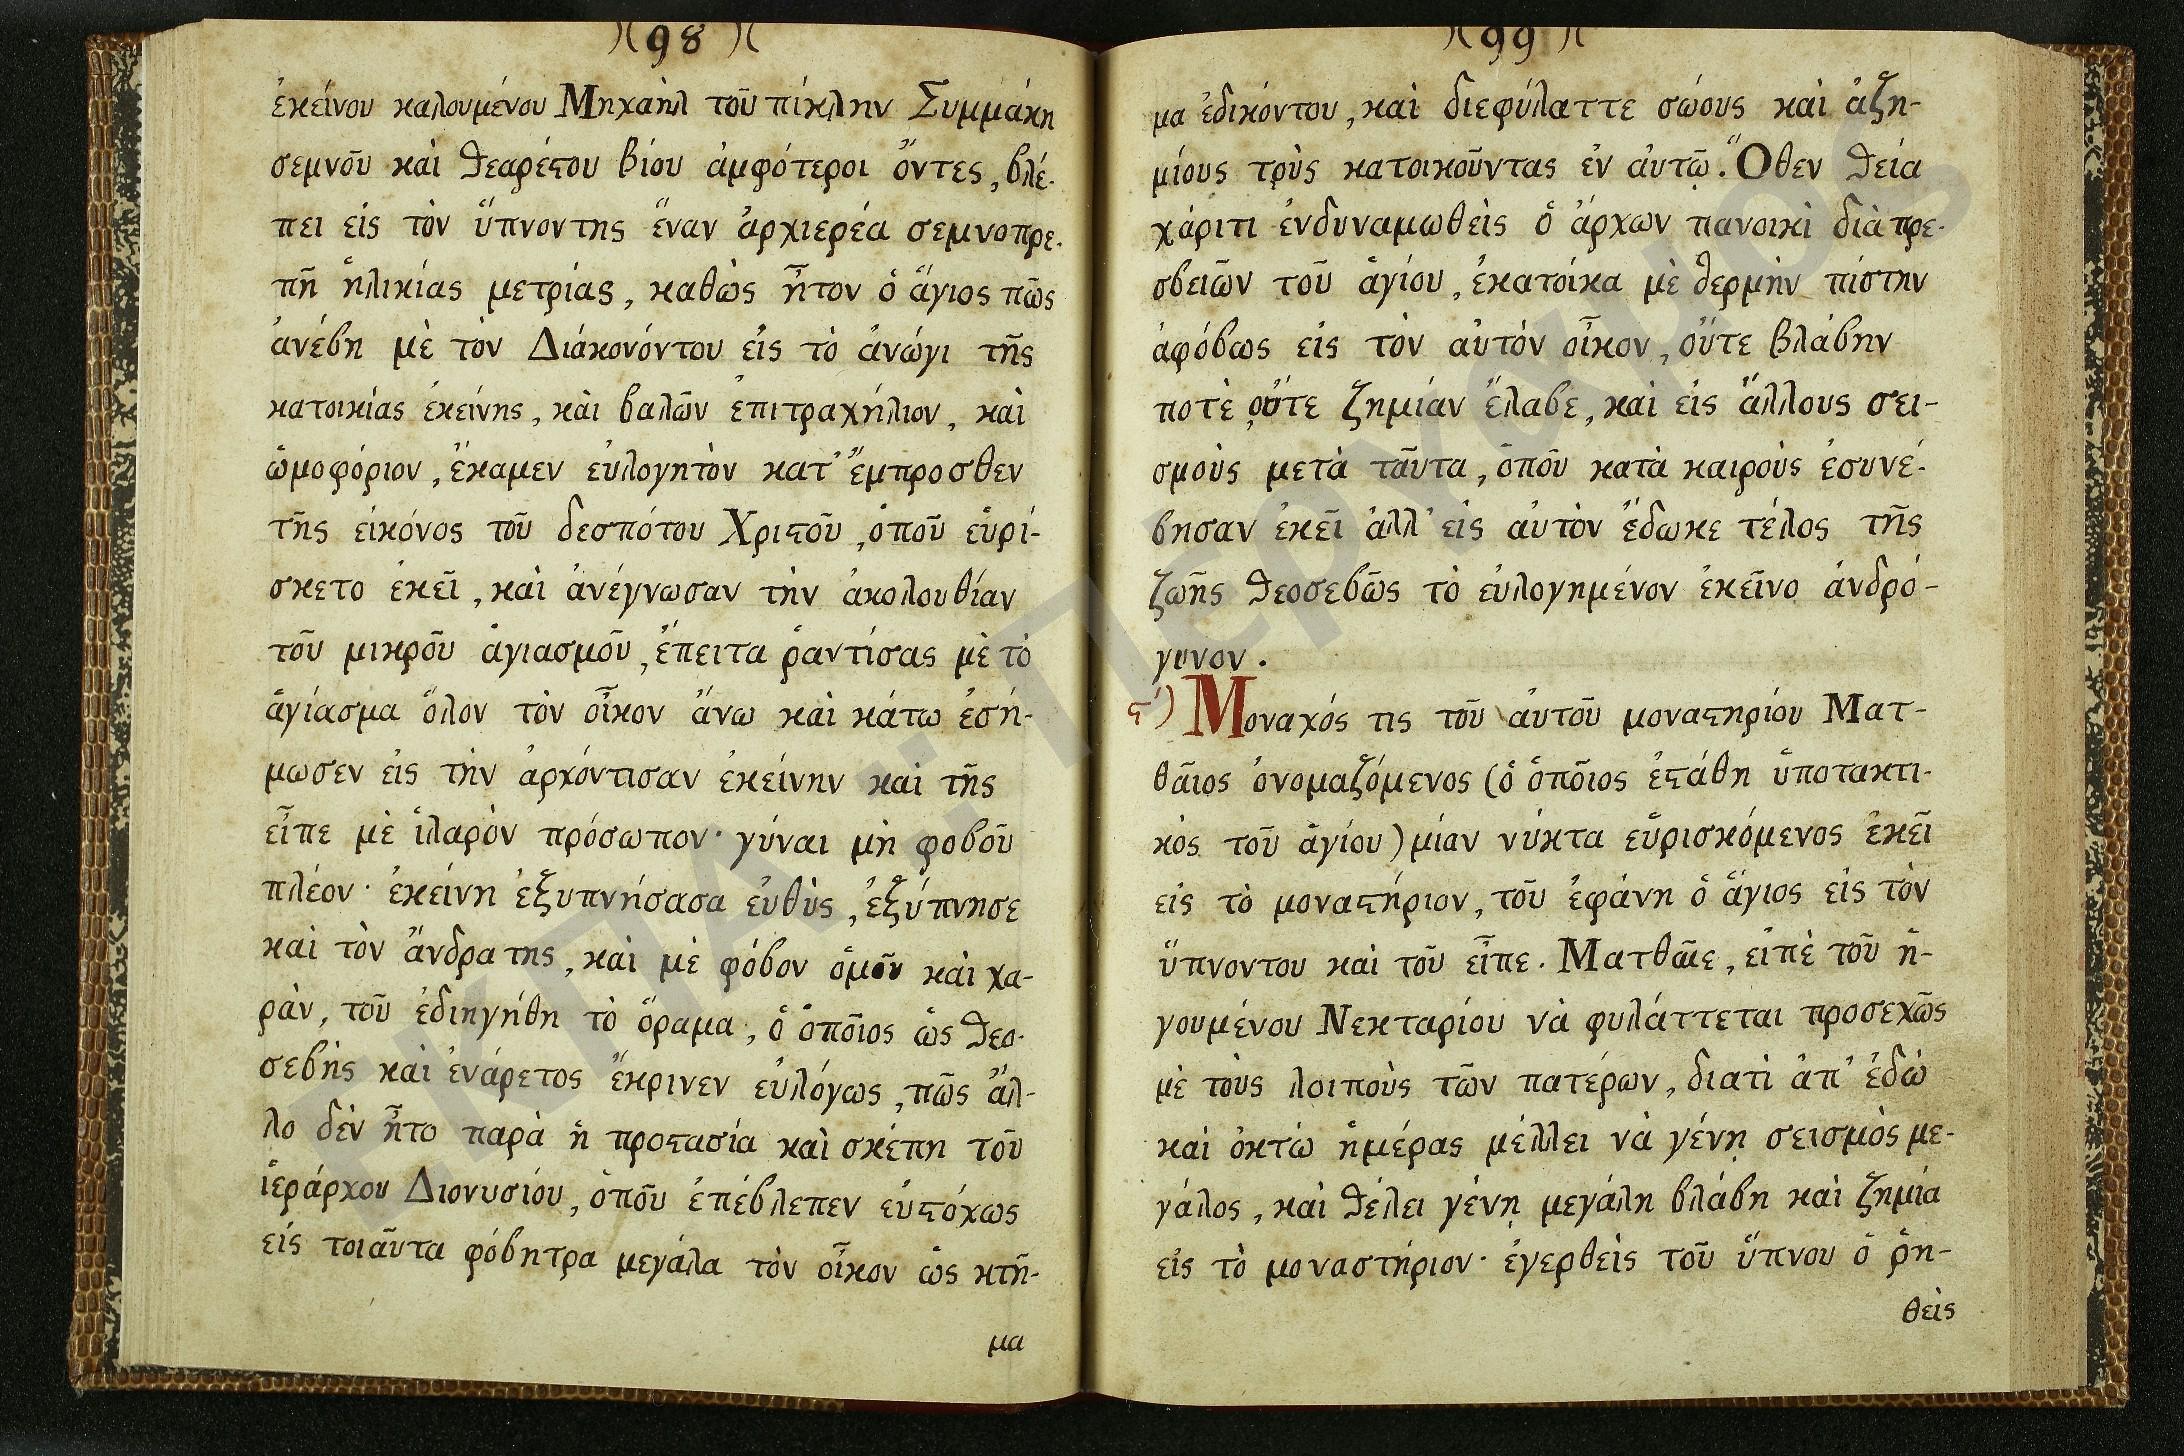 )(98)(
ἐκείνου καλουμένου Μηχαὴλ τοῦ πίκλην Συμμάκη
σεμνοῦ καὶ θεαρέϛου βίου ἀμφότεροι ὄντες, βλέ-
πει εἰς τὸν ὕπνοντης ἕναν ἀρχιερέα σεμνοπρε-
πῆ ἡλικίας μετρίας, καθὼς ἦτον ὁ ἅγιος πῶς
ἀνέβη μὲ τὸν Διάκονόντου εἰς τὸ ἀνώγι τῆς
κατοικίας ἐκείνης, καὶ βαλῶν ἐπιτραχήλιον, καὶ
ὡμοφόριον, ἔκαμεν εὐλογητὸν κατ' ἔμπροσθεν
τῆς εἰκόνος τοῦ δεσπότου Χριϛοῦ, ὁποῦ εὑρί-
σκετο ἐκεῖ, καὶ ἀνέγνωσαν τὴν ἀκολουθίαν
τοῦ μικροῦ ἁγιασμοῦ, ἔπειτα ῥαντίσας μὲ τὸ
ἁγίασμα ὅλον τὸν οἶκον ἄνω καὶ κάτω ἐσή-
μωσεν εἰς τὴν ἀρχόντισαν ἐκείνην καὶ τῆς
εἶπε μὲ ἱλαρὸν πρόσωπον· γύναι μὴ φοβοῦ
πλέον· ἐκείνη ἐξυπνήσασα εὐθὺς, ἐξύπνησε
καὶ τὸν ἄνδρα της, καὶ μὲ φόβον ὁμοῦ καὶ χα-
ρὰν, τοῦ ἐδιηγήθη τὸ ὅραμα, ὁ ὁποῖος ὡς θεο-
σεβὴς καὶ ἐνάρετος ἔκρινεν εὐλόγως, πῶς ἄλ-
λο δὲν ἦτο παρὰ ἡ προϛασία καὶ σκέπη τοῦ
ἱεράρχου Διονυσίου, ὁποῦ ἐπέβλεπεν εὐϛόχως
εἰς τοιαῦτα φόβητρα μεγάλα τὸν οἶκον ὡς κτῆ-
μα
)(99)(
μα ἐδικόντου, καὶ διεφύλαττε σώους καὶ ἀζη-
μίους τοὺς κατοικοῦντας ἐν αὐτῷ. Ὅθεν θεία
χάριτι ἐνδυναμωθεὶς ὁ ἄρχων πανοικὶ διὰ πρε-
σβειῶν τοῦ ἁγίου, ἐκατοίκα μὲ θερμὴν πίστην
ἀφόβως εἰς τὸν αὐτὸν οἶκον, οὔτε βλάβην
ποτὲ, οὔτε ζημίαν ἔλαβε, καὶ εἰς ἄλλους σει-
σμοὺς μετὰ ταῦτα, ὁποῦ κατὰ καιροὺς ἐσυνέ-
βησαν ἐκεῖ ἀλλ' εἰς αὐτὸν ἔδωκε τέλος τῆς
ζωῆς θεοσεβῶς τὸ εὐλογημένον ἐκεῖνο ἀνδρό-
γυνον.
ϛ') Μοναχός τις τοῦ αὐτοῦ μοναϛηρίου Ματ-
θαῖος ὀνομαζόμενος (ὁ ὁποῖος ἐϛάθη ὑποτακτι-
κὸς τοῦ ἁγίου) μίαν νύκτα εὑρισκόμενος ἐκεῖ
εἰς τὸ μοναϛήριον, τοῦ ἐφάνη ὁ ἅγιος εἰς τὸν
ὕπνοντου καὶ τοῦ εἶπε. Ματθαῖε, εἰπὲ τοῦ ἡ-
γουμένου Νεκταρίου νὰ φυλάττεται προσεχῶς
μὲ τοὺς λοιποὺς τῶν πατέρων, διατὶ ἀπ' ἐδώ
καὶ ὀκτὼ ἡμέρας μέλλει νὰ γένῃ σεισμὸς με-
γάλος, καὶ θέλει γένῃ μεγάλη βλάβη καὶ ζημία
εἰς τὸ μοναστήριον· ἐγερθεὶς τοῦ ὕπνου ὁ ῥη-
θεὶς
ΕΚΠΑ :: Πέργαμος